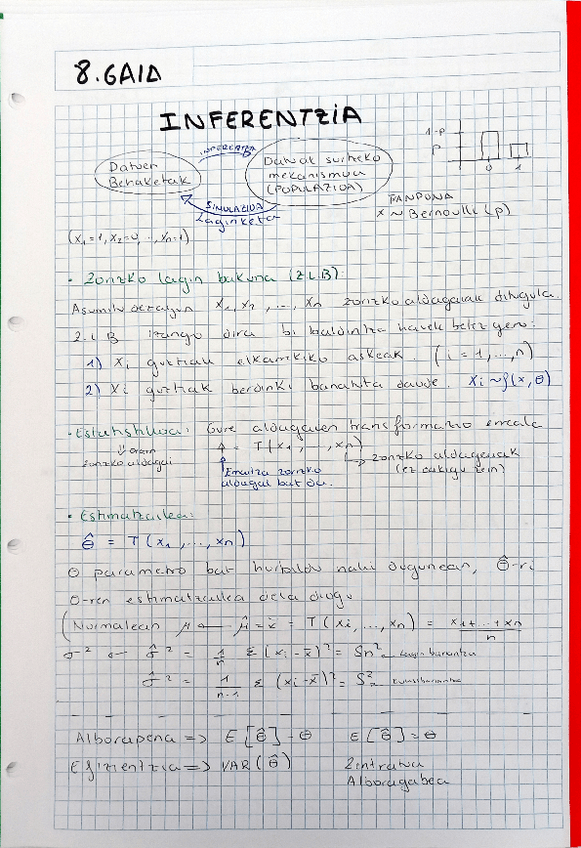 8.GAIA
INFERENTZIA
Datuen Behaketak
INFERENTZIA
Datuak sortzeko mekanismoa (POPULAZIOA)
SIMULAZIOA
Laginketa
1-p
p
0 1
TANPONA
X ~ Bernoulli (p)
(X₁=1, X₂=0, ..., Xn=1)
· Zorizko lagin bakuna (ZLB):
Asumitu dezagun X₁, X₂, ..., Xn zorizko aldagaiak ditugula.
Z.L.B izango dira bi baldintza hauek betez gero:
1) Xi guztiak elkarrekiko askeak. (i = 1, ..., n)
2) Xi guztiak berdinki banatuta daude. Xi ~ f(x, θ)
· Estatistikoa: Gure aldagaien transformazio erreala
zorizko aldagai
= T(X₁, ..., Xn)
zorizko aldagaiak
(ez dakigu zein)
Emaitza zorizko aldagai bat da.
· Estimatzailea:
θ̂ = T(X₁, ..., Xn)
θ parametro bat hurbildu nahi dugunean, θ̂-ri
θ-ren estimatzailea dela diogu
(Normalean μ ← μ̂ = x̄ = T(Xi, ..., Xn) = X₁+...+Xn / n
σ² ← σ̂² = 1/n Σ (xi - x̄)² = Sn² → Lagin bariantza
σ̂² = 1/n-1 Σ (xi - x̄)² = S² → kuasibariantza
Alborapena => E[θ̂] - θ E[θ̂] = θ
Efizientzia => VAR(θ̂) Zentratua
Alboragabea